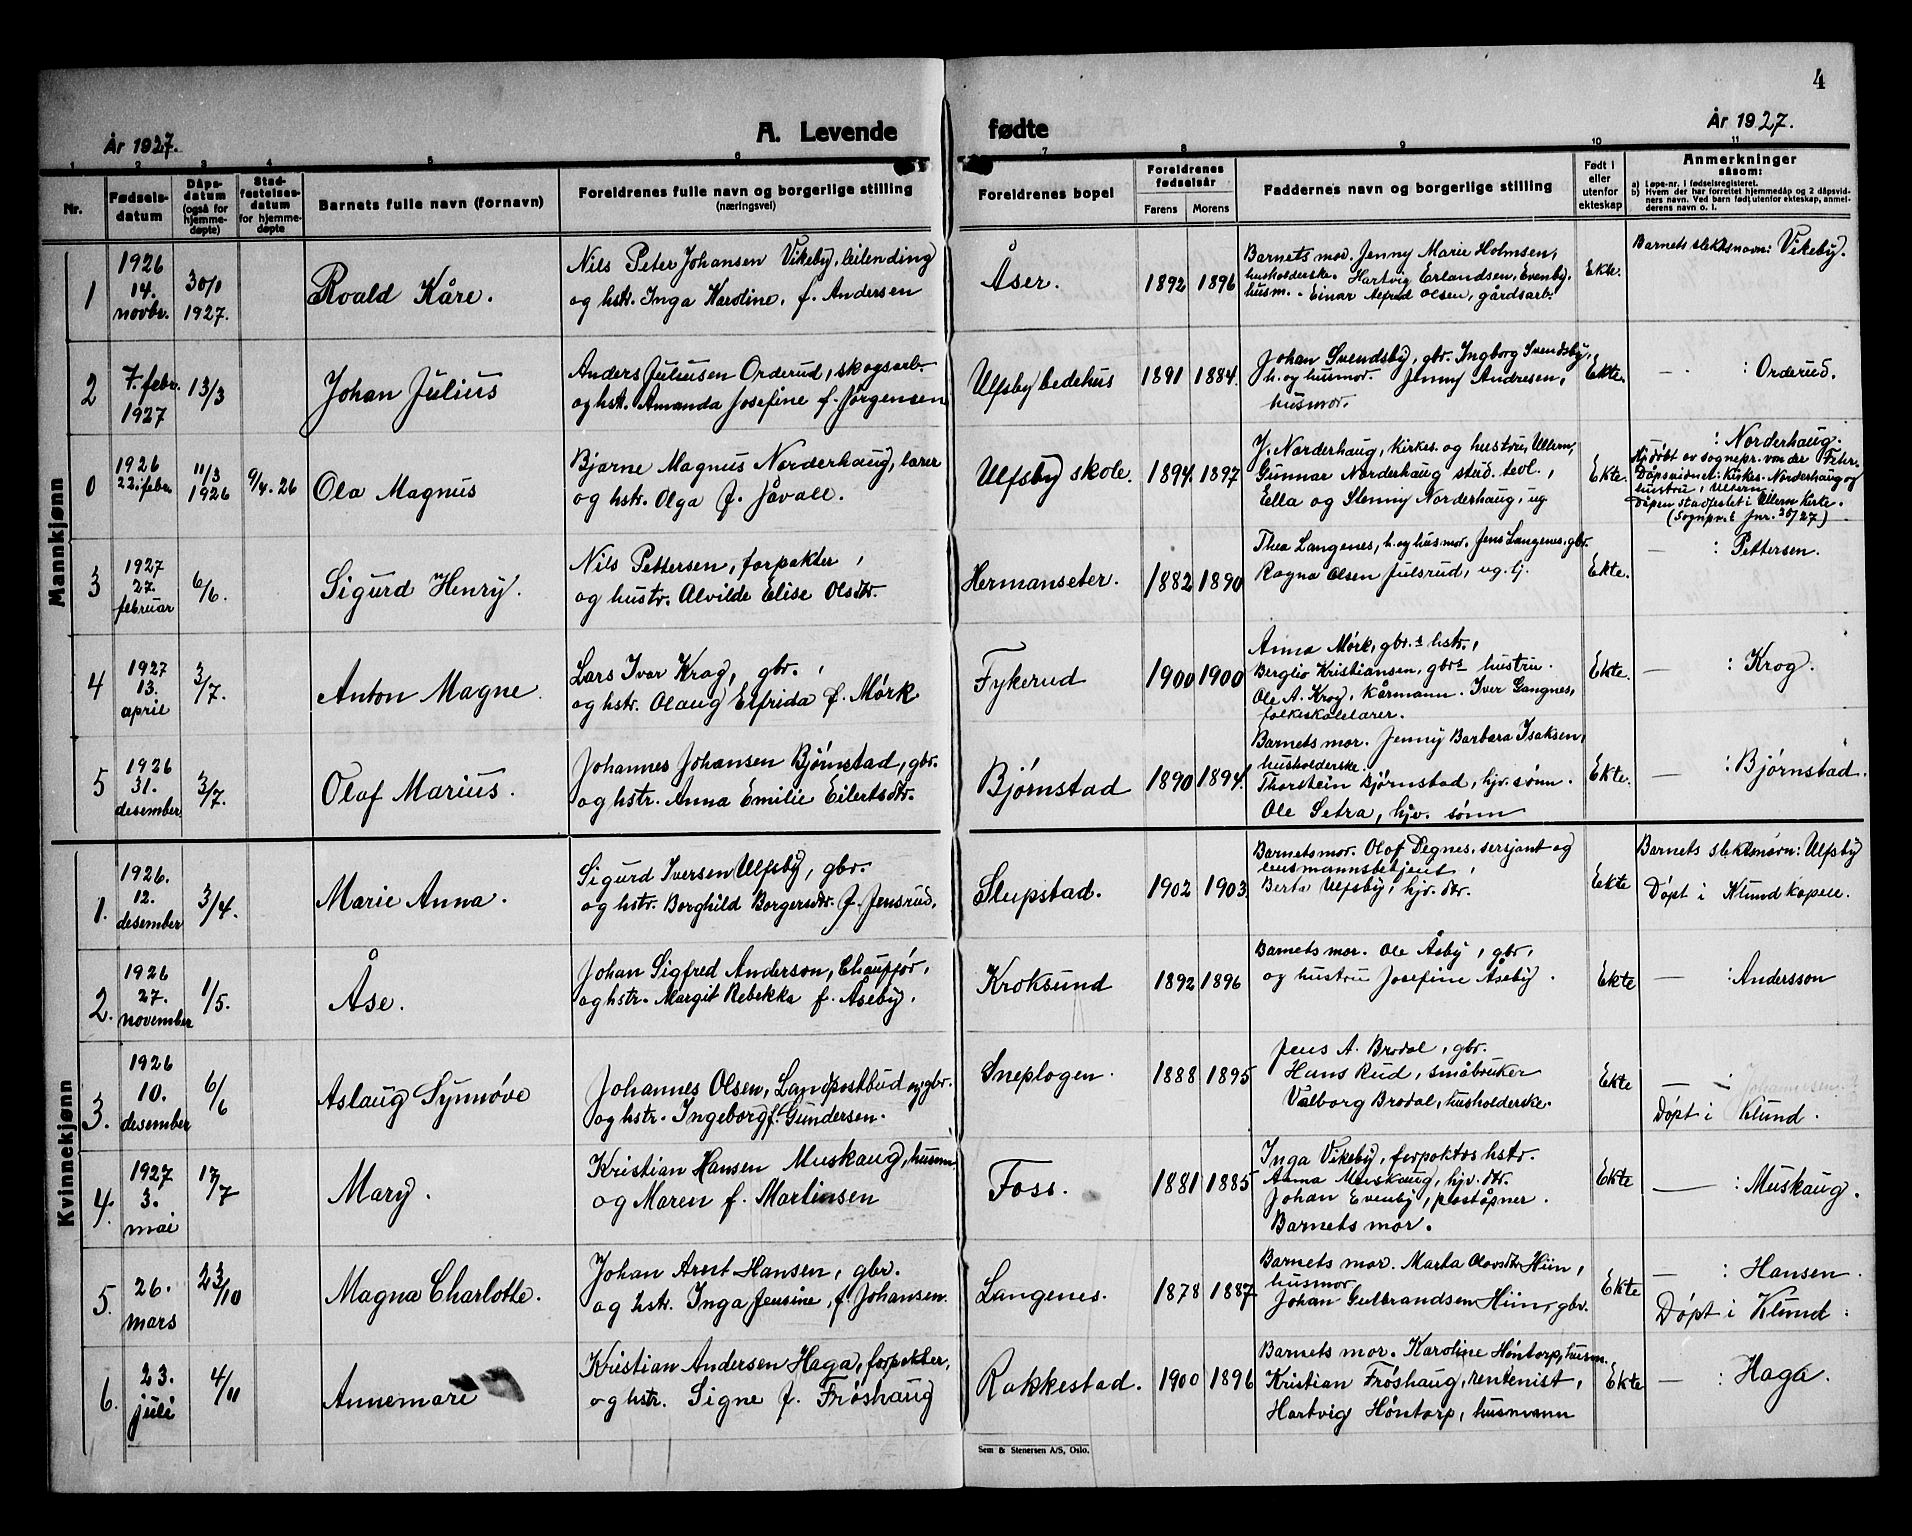 4
År 1927.
A. Levende fødte
År 1927.
1 2 3 4 5 6 7 8 9 10 11
Nr.
Fødsels-
datum
Dåps-
datum
(også for
hjemme-
døpte)
Stad-
festelses-
datum
for hjemme-
døpte
Barnets fulle navn (fornavn)
Foreldrenes fulle navn og borgerlige stilling
(næringsvei)
Foreldrenes bopel
Foreldrenes
fødselsår
Farens Morens
Faddernes navn og borgerlige stilling
Født i
eller
utenfor
ekteskap
Anmerkninger
såsom:
a) Løpe-nr. i fødselsregisteret.
b) Hvem der har forrettet hjemmedåp og 2 dåpsvid-
ners navn. Ved barn født utenfor ekteskap, anmel-
derens navn o. l.
Mannkjønn
1
1926
14.
novbr.
30/1
1927.
Roald Kåre.
Nils Peter Johansen Vikeby, leilending
og hstr. Inga Karoline, f. Andersen
Åser.
1892 1896
Barnets mor. Jenny Marie Holmsen,
husholderske. Hartvig Erlandsen, Evenby,
husm. - Einar Alfred Olsen, gårdsarb.
Ekte.
Barnets slektsnavn: Vikeby.
2
7. febr.
1927
13/3
Johan Julius
Anders Juliusen Orderud, skogsarb.
og hstr. Amanda Josefine f. Jørgensen
Ulfsby bedehus
1891 1884.
Johan Svendsby, gbr. Ingborg Svendsby,
h. og husmor. Jenny Andresen,
husmor.
Ekte.
— : Orderud.
0
1926
22. febr.
11/3
1926
9/4. 26
Ola Magnus
Bjarne Magnus Norderhaug, lærer
og hstr. Olga f. Jåvall.
Ulfsby skole.
1894. 1897
J. Norderhaug, kirkes. og hustru, Ullern,
Gunnar Norderhaug stud. teol.,
Ella og Slenny Norderhaug, ug
Ekte.
: Norderhaug.
Hj. døbt av sognepr. von der Fehr.
Dåpsvidnet: Kirkes. Norderhaug og
hustru, Ullern.
Dåpen stadfestet i Ullern Kirke.
(Sognpr.s Jnr. 25/27)
3
1927
27.
februar
6/6.
Sigurd Henry.
Nils Pettersen, forpakter,
og hustr. Alvilde Elise Olsdtr.
Hermanseter.
1882 1890
Thea Langenes, h. og husmor. Jens Langenes, gbr.
Ragna Olsen Julsrud, ug. tj.
Ekte.
— : Pettersen.
4
1927
13.
april
3/7.
Anton Magne.
Lars Ivar Krog, gbr.,
og hstr. Olaug Elfrida f. Mørk
Fykerud
1900 1900
Anna Mørk, gbr.s hstr.,
Berglio Kristiansen, gbrs hustru.
Ole A. Krog, kårmann. Iver Langnes,
folkeskolelærer.
Ekte.
— : Krog.
5
1926
31.
desember
3/7.
Olaf Marius.
Johannes Johansen Bjørnstad, gbr.
og hstr. Anna Emilie Eilertsdtr.
Bjørnstad
1890 1894.
Barnets mor. Jenny Barbara Isaksen,
husholderske.
Thorstein Bjørnstad, hjv. sønn.
Ole Setra, hjv. sønn
Ekte.
— : Bjørnstad.
Kvinnekjønn
1.
1926.
12.
desember
3/4.
Marie Anna.
Sigurd Iversen Ulfsby, gbr.
og hstr. Borghild Borgersdtr. f. Jensrud.
Slupstad.
1902 1903.
Barnets mor. Olaf Degnes, sersjant og
lensmannsbetjent,
Berta Ulfsby, hjv. dtr.
Ekte
Barnets slektsnavn: Ulfsby
Døpt i Klund kapell.
2.
1926
27.
november
1/5.
Åse.
Johan Sigfred Anderson, Chauffør,
og hstr. Margit Rebekka f. Åseby.
Kroksund
1892 1896
Barnets mor. Ole Åsby, gbr,
og hustru Josefine Åseby.
Ekte
— : Andersson
3.
1926
10.
desember
6/6
Aslaug Synnøve
Johannes Olsen, Landpostbud og gbr.
og hstr. Ingeborg f. Gundersen.
Sneplogen.
1888 1895
Jens A. Brodal, gbr.
Hans Rud, småbruker
Valborg Brodal, husholderske.
Ekte
— : Johannesen.
Døpt i Klund.
4.
1927
3.
mai
17/7
Mary.
Kristian Hansen Muskaug, husm.
og Maren f. Martinsen
Foss.
1881 1885
Inga Vikeby, forpaktes hstr.
Anna Muskaug, hjv. dtr.
Johan Evenby, poståpner.
Barnets mor.
Ekte
— : Muskaug.
5.
26.
mars
23/10
Magna Charlotte.
Johan Arnt Hansen, gbr.
og hstr. Inga Jensine, f. Johansen.
Langenes.
1878 1887
Barnets mor. Marta Olavsdtr Hiin,
husmor
Johan Gulbrandsen Hiin, gbr.
Ekte
— : Hansen.
Døpt i Klund:
6.
23.
juli
4/11
Annemari
Kristian Andersen Haga, forpakter,
og hstr. Signe f. Frøshaug
Rakkestad.
1900 1896
Barnets mor. Karoline Høntorp, husm.
Kristian Frøshaug, rentenist,
Hartvig Høntorp, husmann
Ekte
— : Haga.
Sem & Stenersen A/S, Oslo.